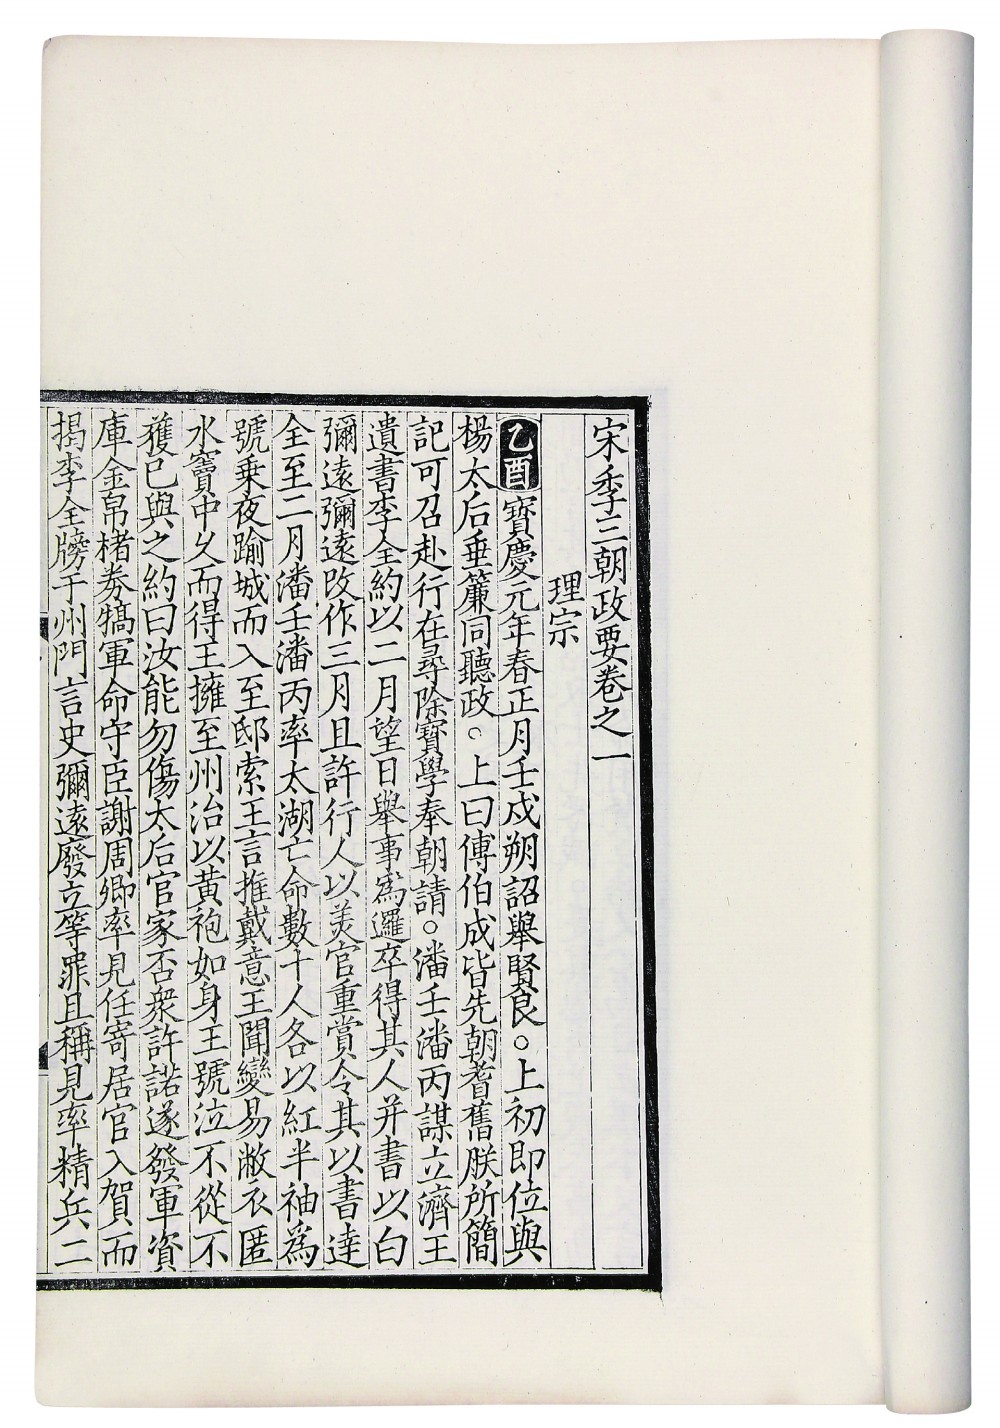 宋季三朝政要卷之一
理宗
乙酉寶慶元年春正月壬戍朔詔舉賢良○上初即位與
楊太后垂簾同聽政○上曰傅伯成皆先朝耆舊朕所簡
記可召赴行在尋除寶學奉朝請○潘壬潘丙謀立濟王
遺書李全約以二月望日舉事爲邏卒得其人并書以白
彌遠彌遠改作三月且許行人以美官重賞令其以書達
全至二月潘壬潘丙率太湖亡命數十人各以紅半袖爲
號乗夜踰城而入至邸索王言推戴意王聞變易敝衣匿
水竇中乆而得王擁至州治以黃袍如身王號泣不從不
獲已與之約曰汝能勿傷太后官家否衆許諾遂發軍資
庫金帛楮券犒軍命守臣謝周卿率見任寄居官入賀而
揭李全牓于州門言史彌遠廢立等罪且稱見率精兵二